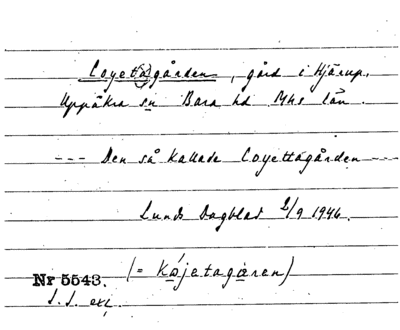 Coyetågården, gård i Hjärup,
Uppåkra sn Bara hd Mhs län.
--- Den så kallade Coyettågården ---
Lunds Dagblad 2/9 1946.
(= Kåjetagåren)
Nr 5543.
S. S. ex.